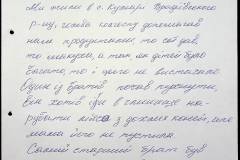 Ми жили в с. Кумарі Врадіївського
р-ну, голова колгоспу допомагав
нам продуктами, то соб дав,
то макухи, а так як дітей було
багато, то і цього не вистачало
Один із братів почав пухнути,
Він хотів іти в глинище на-
рубати мяса з дохлих коней, але
мама його не пустила
Самий старший брат був